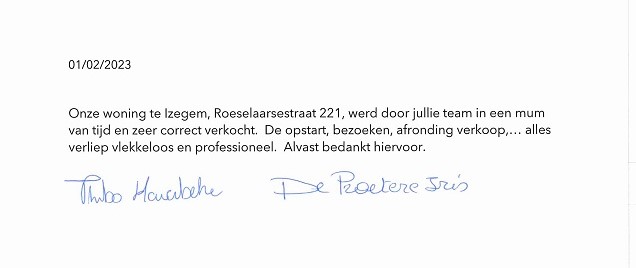 01/02/2023
Onze woning te Izegem, Roeselaarsestraat 221, werd door jullie team in een mum
van tijd en zeer correct verkocht.  De opstart, bezoeken, afronding verkoop,… alles
verliep vlekkeloos en professioneel.  Alvast bedankt hiervoor.
De Iris